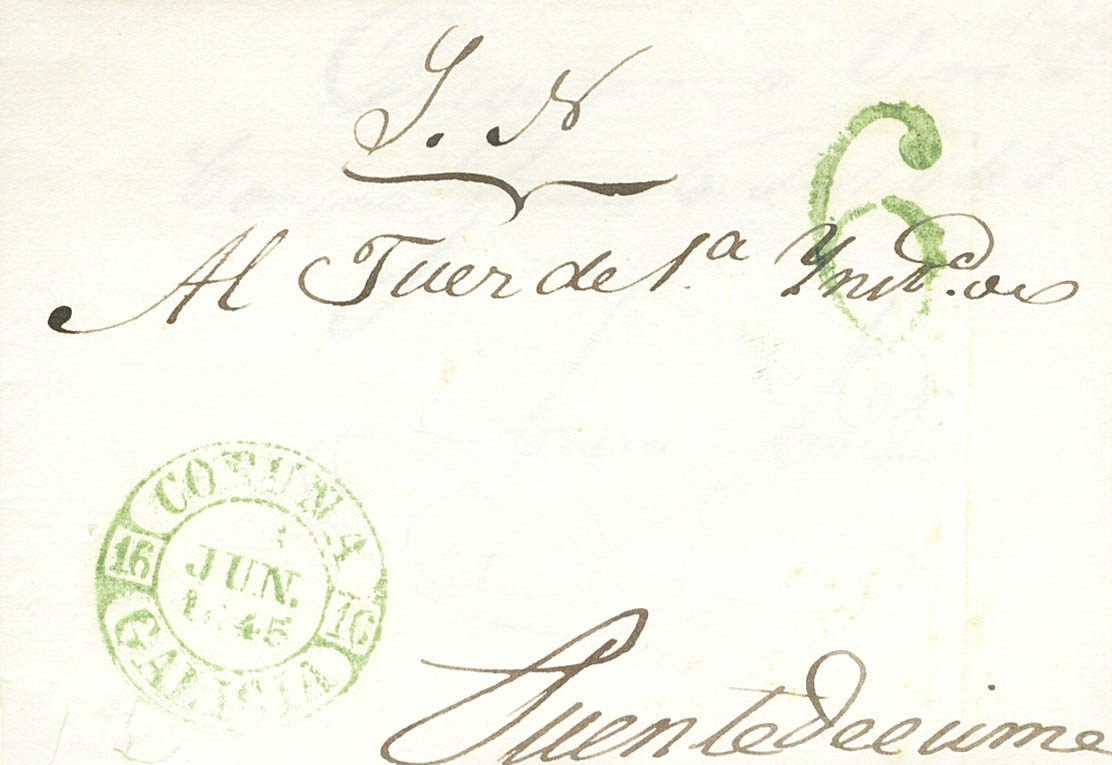 S. N
6
Al Juez de 1.ª Ynst.ª de
CORUÑA
16 JUN. 16
1845
GALICIA
Puentedeeume